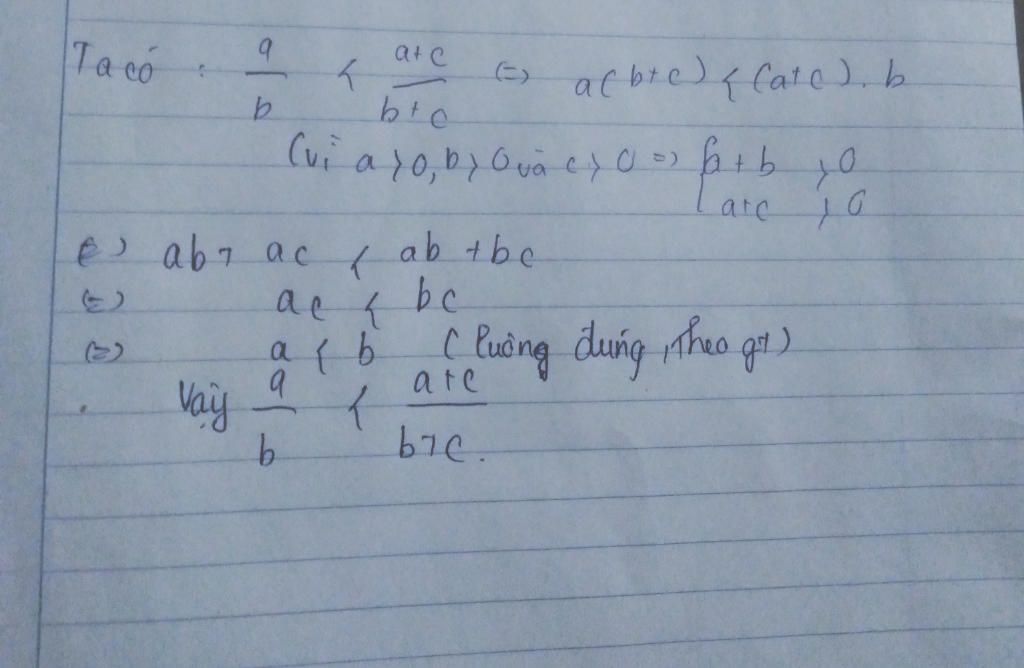 Ta có : a/b < a+c/b+c (=) a(b+c) < (a+c). b
(vì a > 0, b > 0 và c > 0 => { a + b > 0
a+c > 0
(=) ab+ ac < ab + bc
(=) ac < bc
(=) a < b (luông đúng, theo gt)
. Vậy a/b < a+c/b+c.